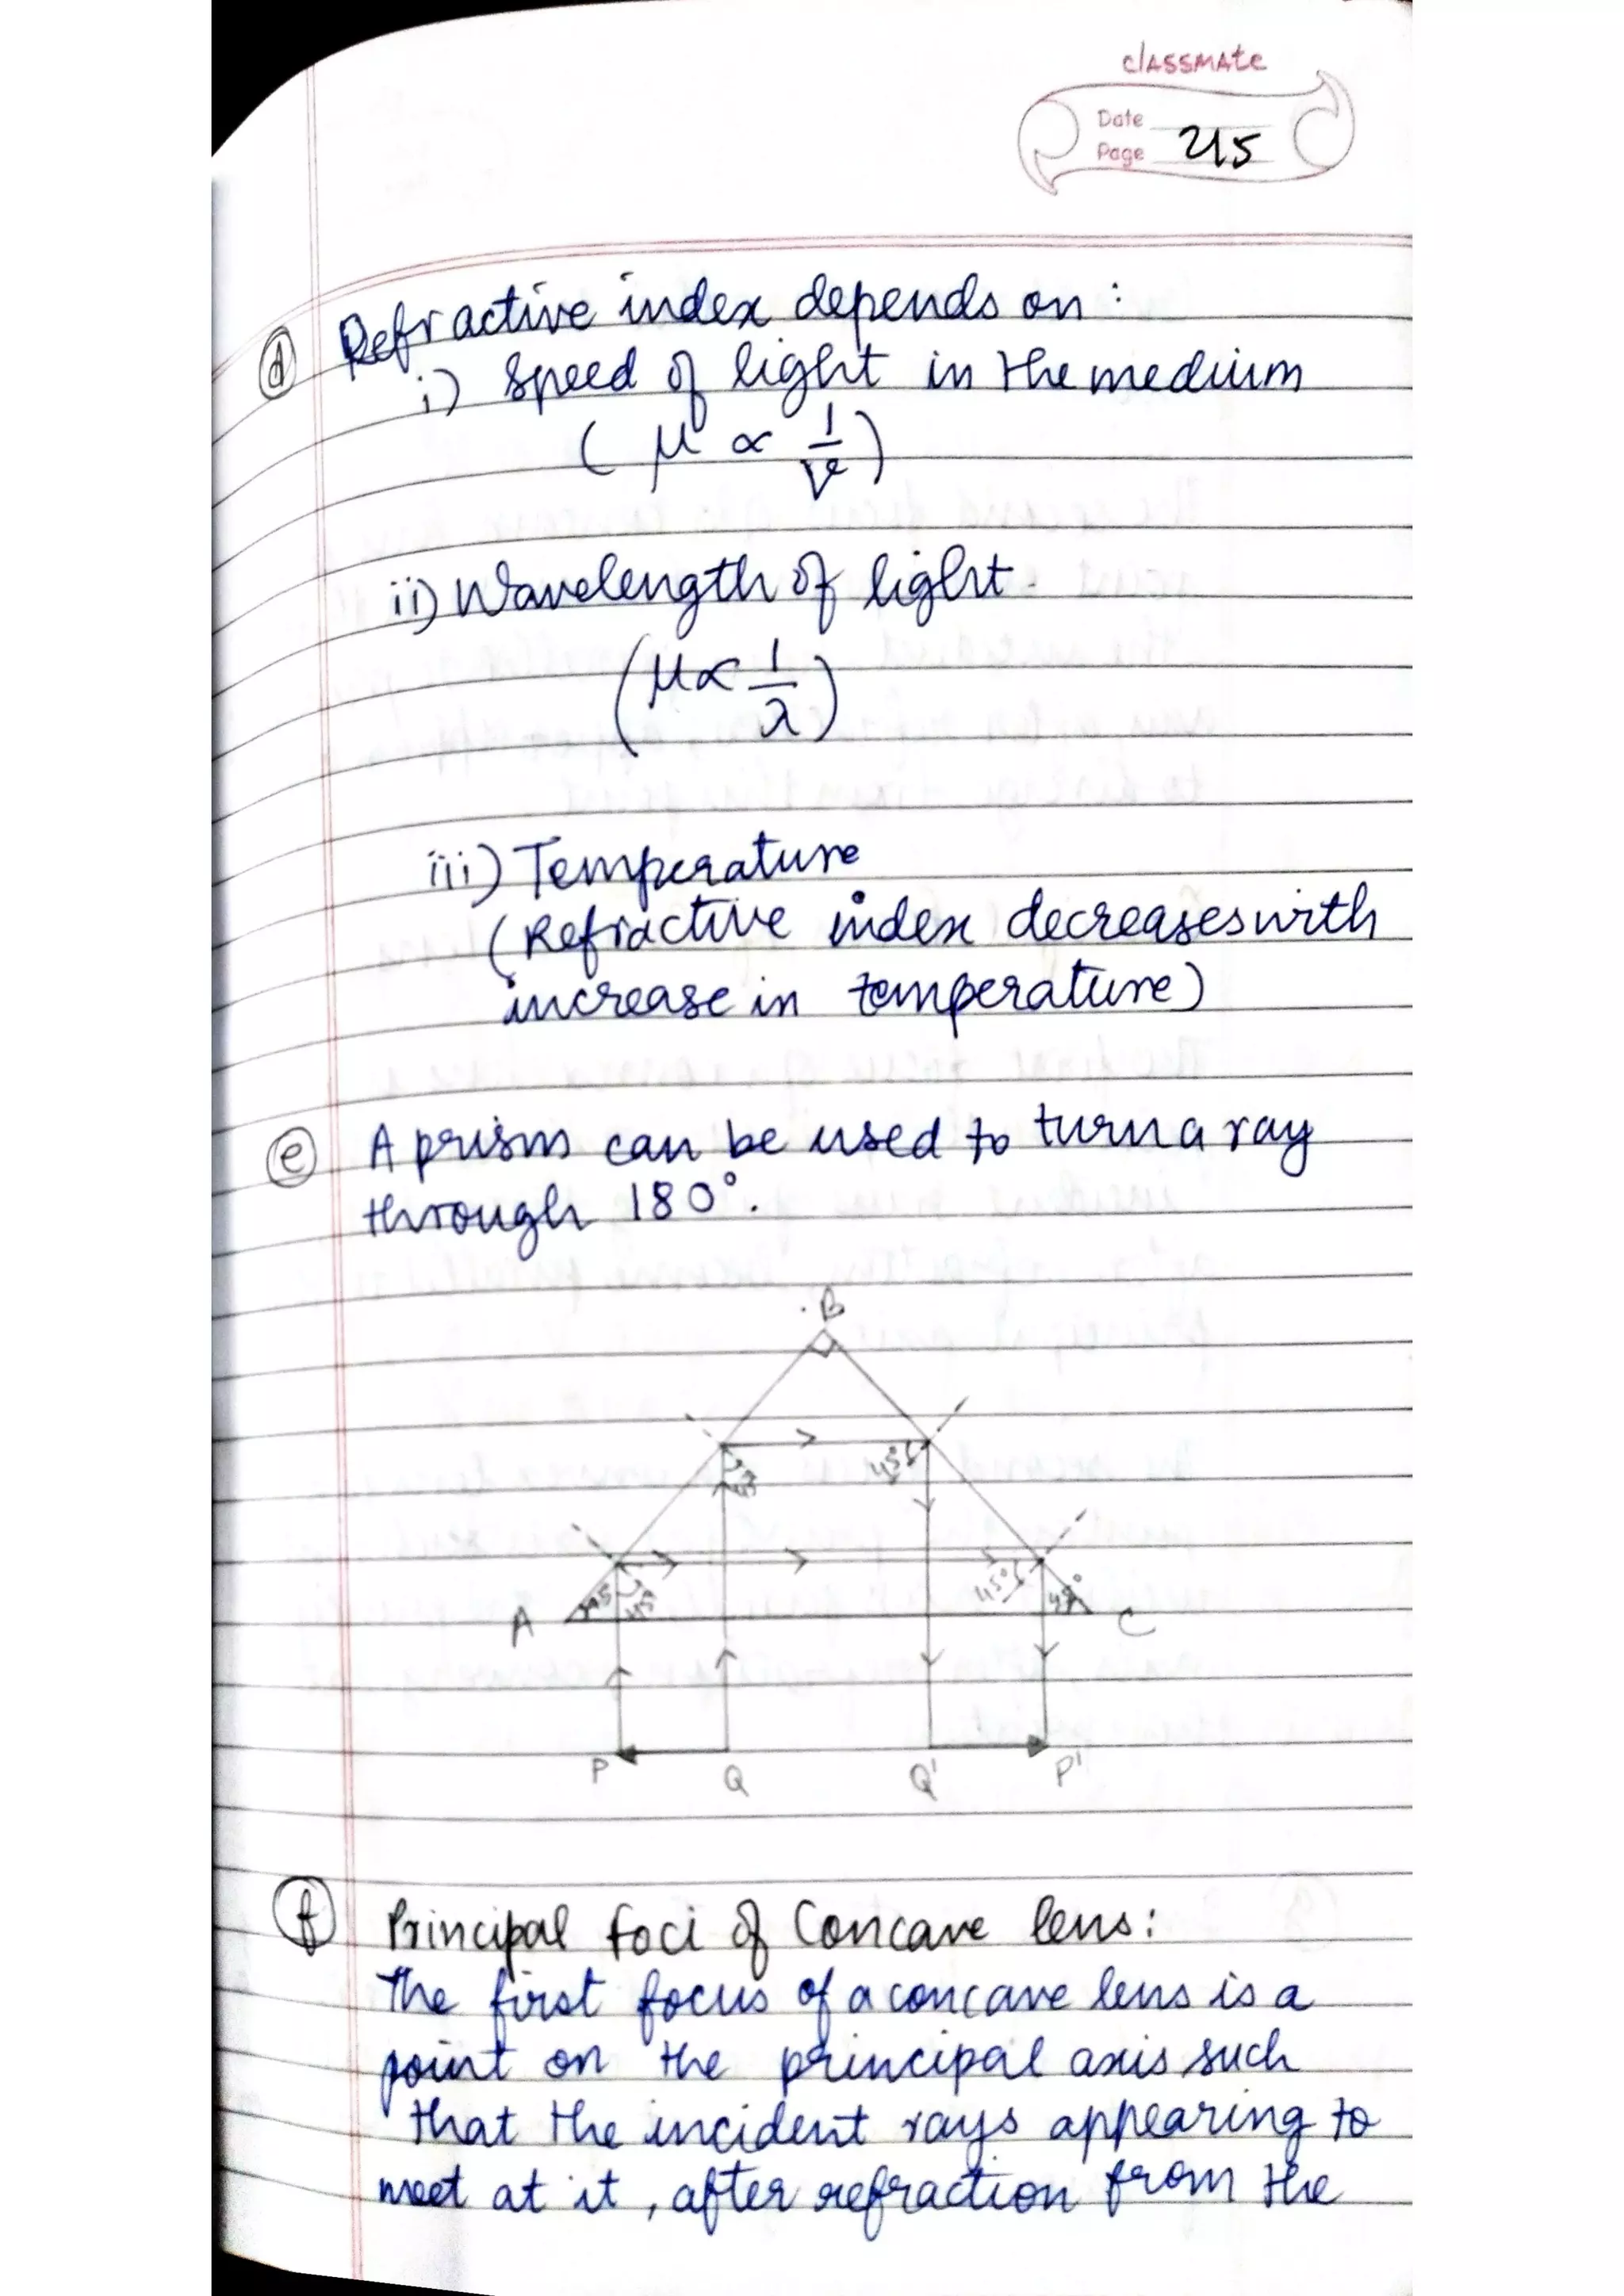 classmate
Date
Page 215
(d) Refractive index depends on :
i) Speed of light in the medium
( μ ∝ 1/V )
ii) Wavelength of light.
( μ ∝ 1/λ )
iii) Temperature
(Refractive index decreases with
increase in temperature)
(e) A prism can be used to turn a ray
through 180°.
B
45°
45°
45°
45°
45°
45°
A
C
P
Q
Q'
P'
(f) Principal foci of Concave lens :
The first focus of a concave lens is a
point on the principal axis such
that the incident rays appearing to
meet at it , after refraction from the